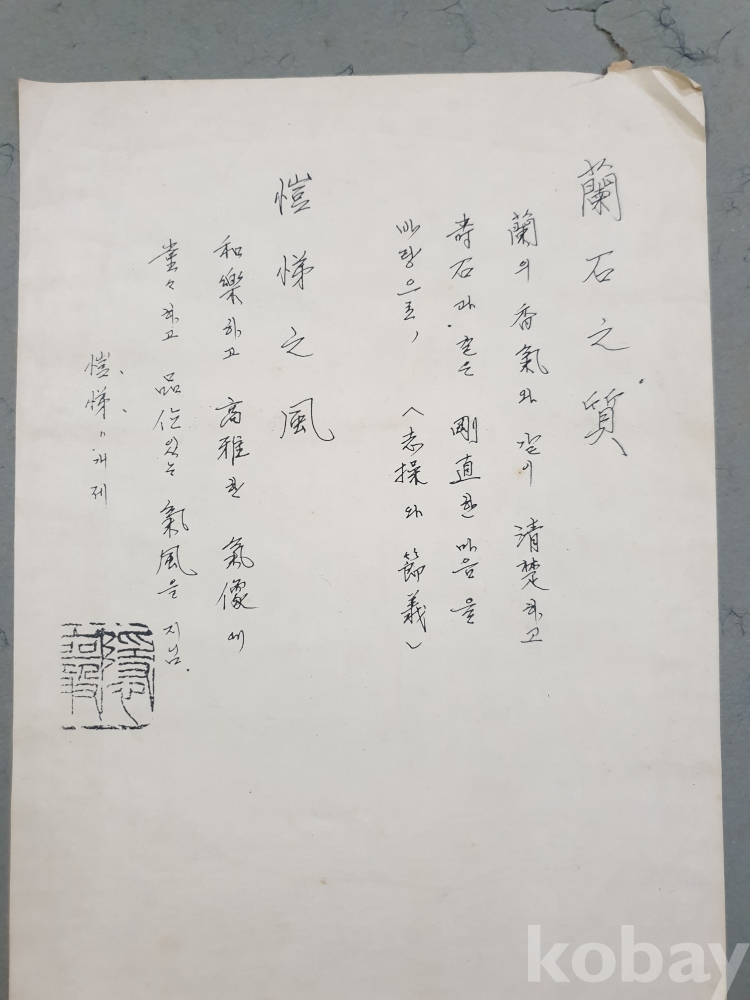 蘭石之質
蘭의 香氣와 같이 清楚하고
壽石과 같은 剛直한 마음을
바탕으로, (志操와 節義)
愷悌之風
和樂하고 高雅한 氣像에
堂々하고 品位있는 氣風을 지님.
愷悌, 개제
kobay